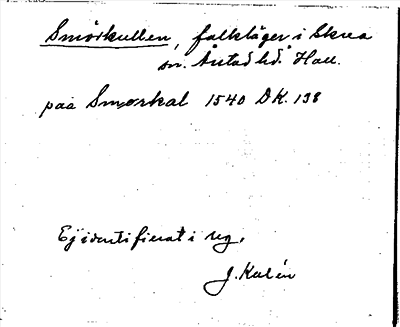 Smörkullen, falkläger i Skrea
sn. Årstad hd. Hall.
paa Smørkal 1540 DK. 198
Ej identifierat i reg.
J. Kalén